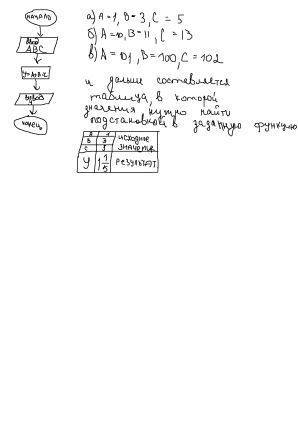 начало
Ввод
ABC
вывод
конец
а) A=1, B=3, C=5
б) A=10, B=11, C=13
в) A=101, B=100, C=102
и дальше составляется
таблица, в которой
значения нужно найти
подстановкой в заданную функцию
A 1
B 3
C 5
исходные
значения
У
результат